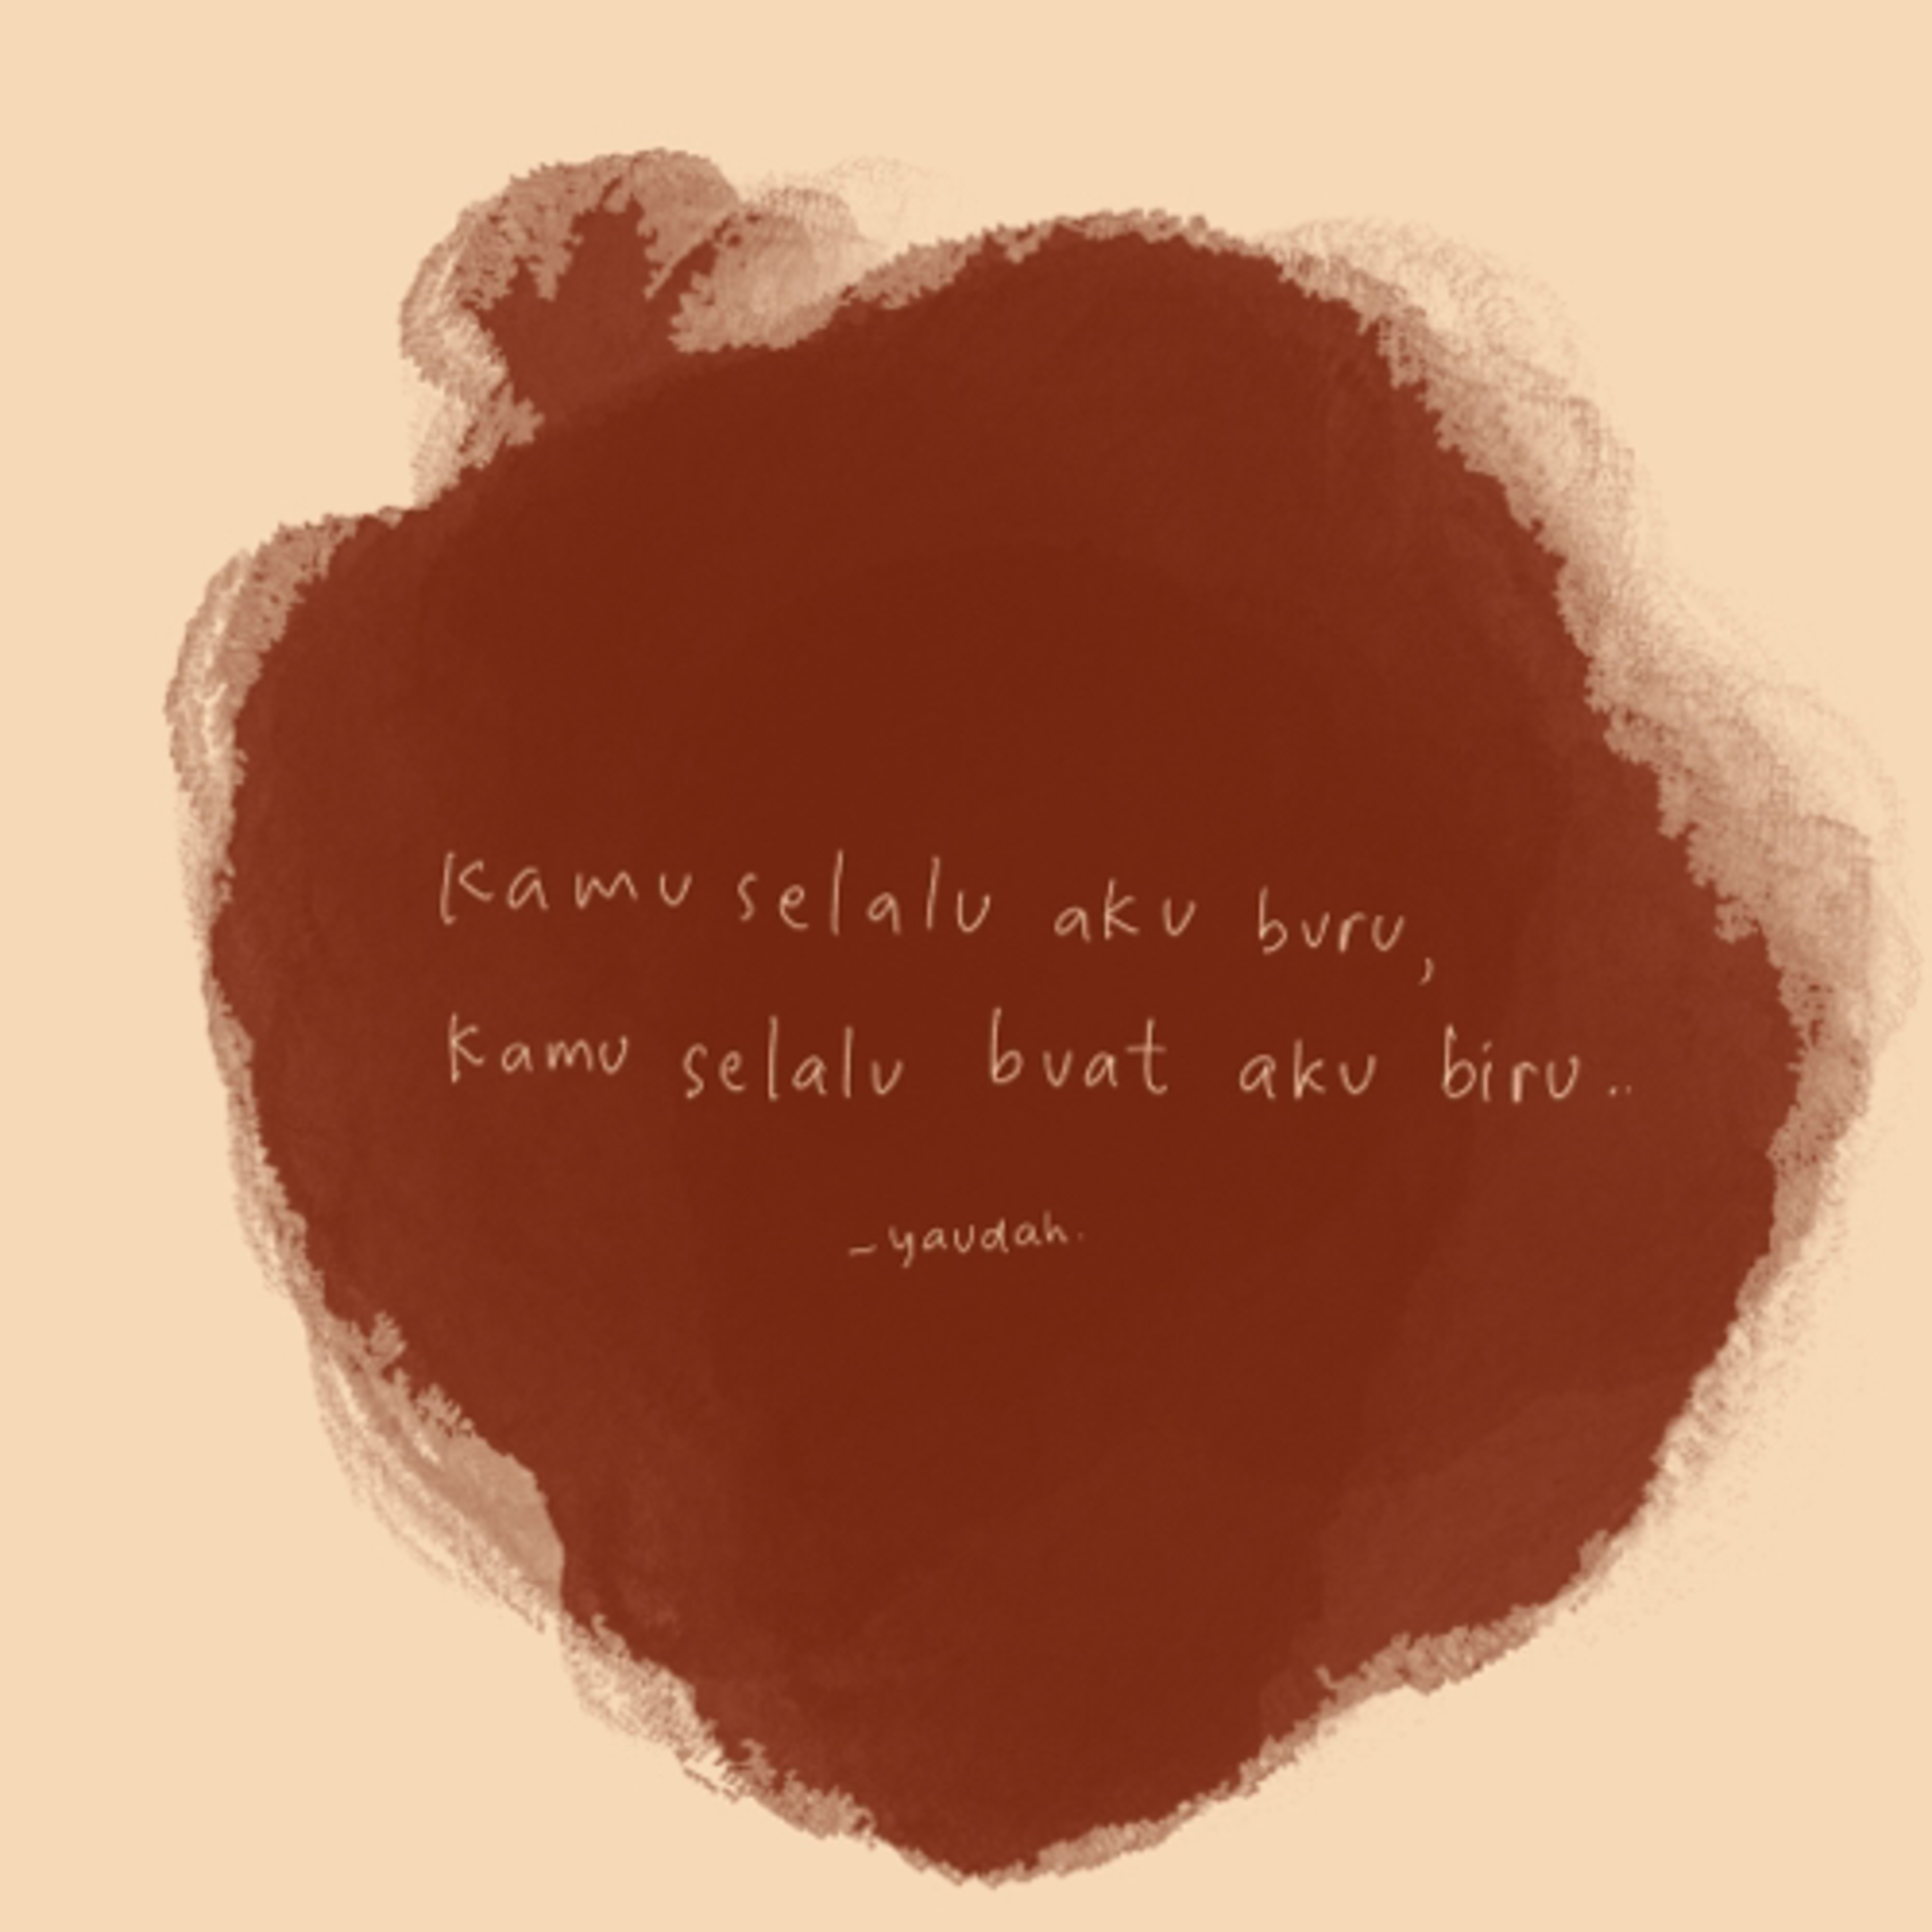 Kamu selalu aku buru,
Kamu selalu buat aku biru..
-yaudah.